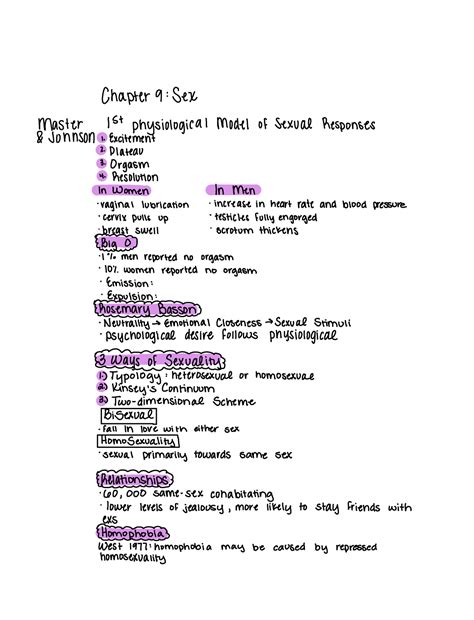 Chapter 9: Sex
Master & Johnson
1st physiological Model of Sexual Responses
1. Excitement
2. Plateau
3. Orgasm
4. Resolution
In Women
· vaginal lubrication
· cervix pulls up
· breast swell
In Men
· increase in heart rate and blood pressure
· testicles fully engorged
· scrotum thickens
Big O
· 1% men reported no orgasm
· 10% women reported no orgasm
· Emission:
· Expulsion:
Rosemary Basson
· Neutrality → Emotional Closeness → Sexual Stimuli
· psychological desire follows physiological
3 Ways of Sexuality
1.) Typology: heterosexual or homosexual
2) Kinsey's Continuum
3) Two-dimensional Scheme
Bisexual
· fall in love with either sex
HomoSexuality
· sexual primarily towards same sex
Relationships
· 60,000 same-sex cohabitating
· lower levels of jealousy, more likely to stay friends with
exs
Homophobia
West 1977: homophobia may be caused by repressed
homosexuality